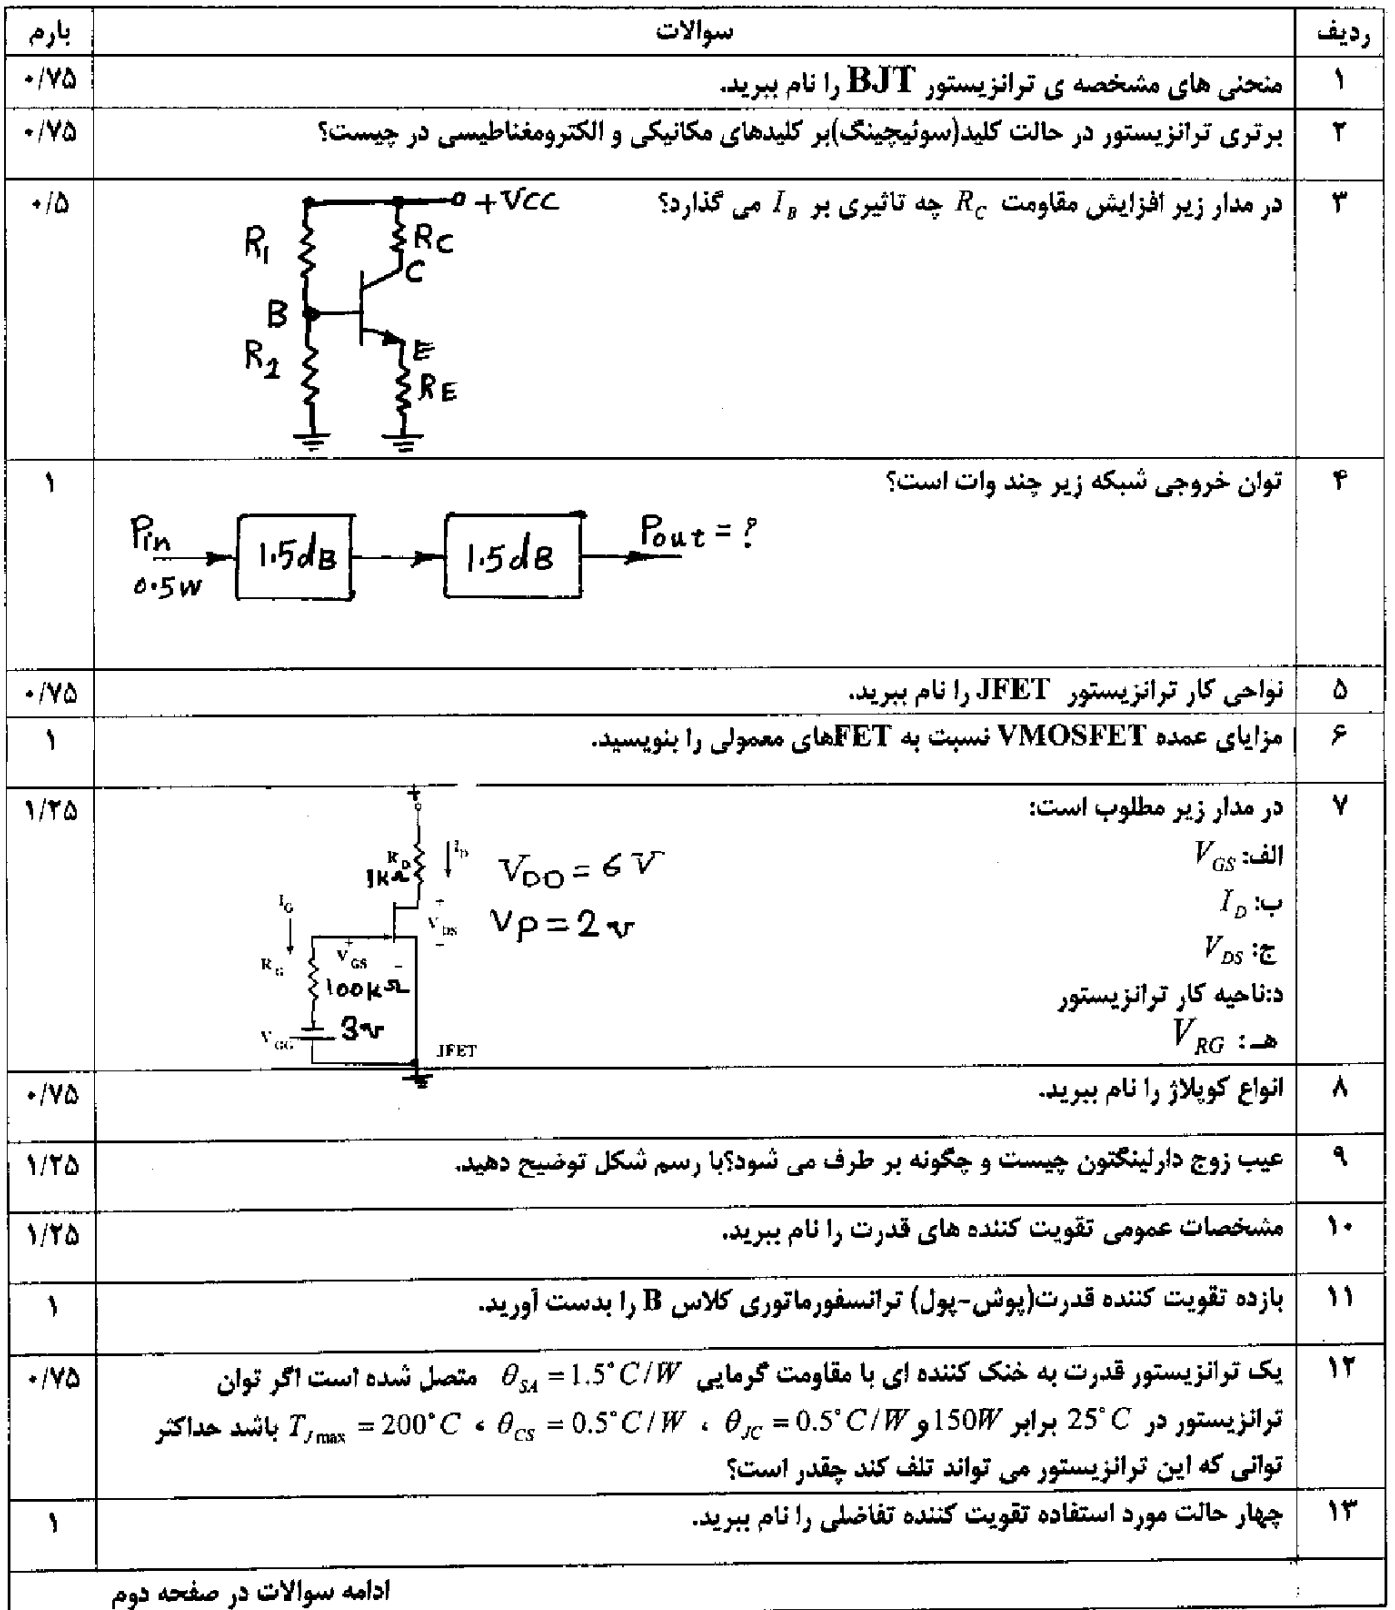 ردیف سوالات بارم
۱ منحنی های مشخصه ی ترانزیستور BJT را نام ببرید. ۰/۷۵
۲ برتری ترانزیستور در حالت کلید(سوئیچینگ)بر کلیدهای مکانیکی و الکترومغناطیسی در چیست؟ ۰/۷۵
۳ در مدار زیر افزایش مقاومت R_C چه تاثیری بر I_B می گذارد؟ ۰/۵
+VCC
R1
RC
C
B
R2
E
RE
۴ توان خروجی شبکه زیر چند وات است؟ ۱
Pin 1.5dB 1.5dB Pout = ?
0.5W
۵ نواحی کار ترانزیستور JFET را نام ببرید. ۰/۷۵
۶ مزایای عمده VMOSFET نسبت به FETهای معمولی را بنویسید. ۱
۷ در مدار زیر مطلوب است: ۱/۲۵
الف: V_GS
ب: I_D
ج: V_DS
د:ناحیه کار ترانزیستور
هـ : V_RG
+
R_D I_D
1kΩ
VDD = 6V
VP = 2v
I_G
+
V_DS
−
R_G
+
V_GS
−
100kΩ
V_GG 3v
JFET
۸ انواع کوپلاژ را نام ببرید. ۰/۷۵
۹ عیب زوج دارلینگتون چیست و چگونه بر طرف می شود؟با رسم شکل توضیح دهید. ۱/۲۵
۱۰ مشخصات عمومی تقویت کننده های قدرت را نام ببرید. ۱/۲۵
۱۱ بازده تقویت کننده قدرت(پوش-پول) ترانسفورماتوری کلاس B را بدست آورید. ۱
۱۲ یک ترانزیستور قدرت به خنک کننده ای با مقاومت گرمایی θ_SA = 1.5°C/W متصل شده است اگر توان ۰/۷۵
ترانزیستور در 25°C برابر 150W و θ_JC = 0.5°C/W ، θ_CS = 0.5°C/W ، T_Jmax = 200°C باشد حداکثر
توانی که این ترانزیستور می تواند تلف کند چقدر است؟
۱۳ چهار حالت مورد استفاده تقویت کننده تفاضلی را نام ببرید. ۱
ادامه سوالات در صفحه دوم